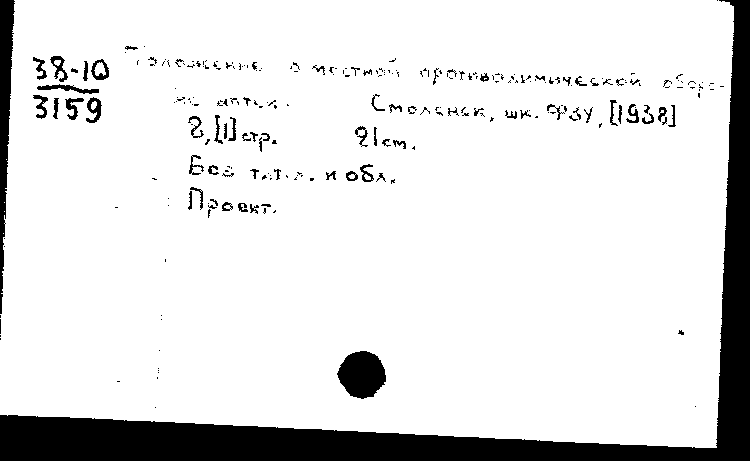 38-10
3159
Положение о местной противохимической оборо-
не аптек. Смоленск, шк. ФЗУ, [1938]
8, [1] стр. 21 см.
Без тит. л. и обл.
Проект.